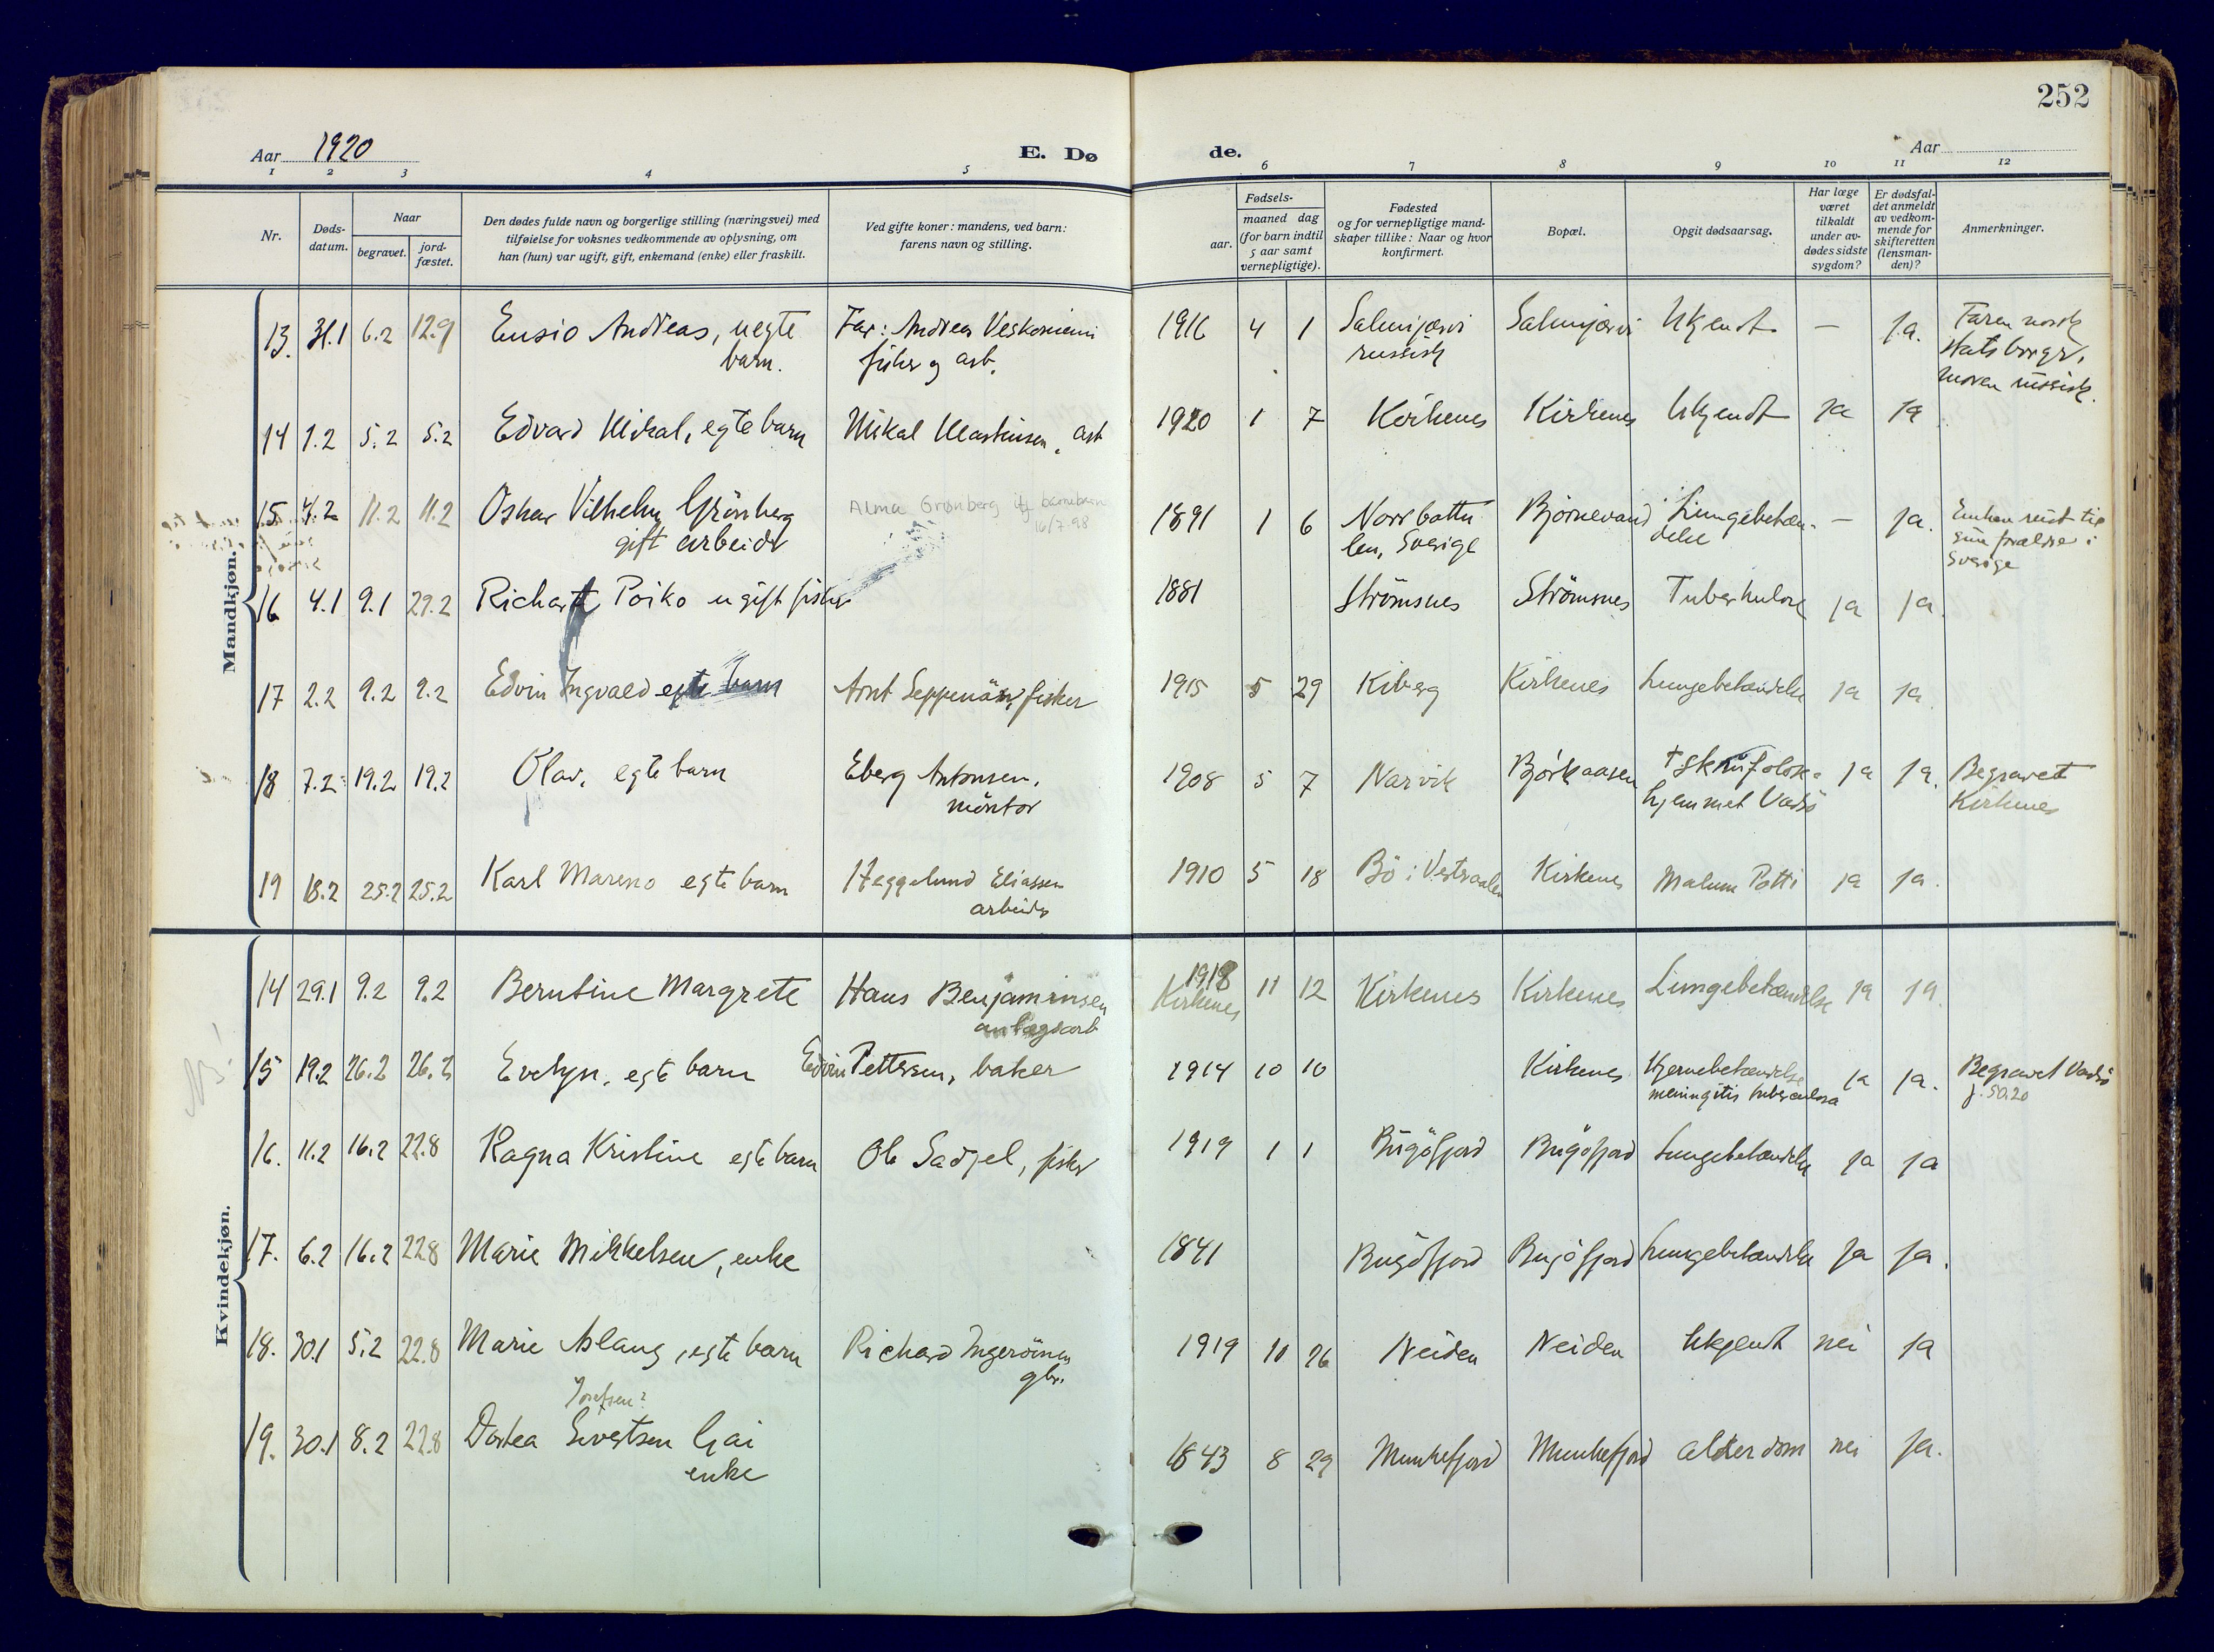 252
Aar 1920
E. Dø
de.
Aar
1 2 3 4 5 6 7 8 9 10 11 12
Nr.
Døds-
datum.
Naar
begravet.
jord-
fæstet.
Den dødes fulde navn og borgerlige stilling (næringsvei) med
tilføielse for voksnes vedkommende av oplysning, om
han (hun) var ugift, gift, enkemand (enke) eller fraskilt.
Ved gifte koner: mandens, ved barn:
farens navn og stilling.
Fødsels-
aar.
maaned dag
(for barn indtil
5 aar samt
vernepligtige).
Fødested
og for vernepligtige mand-
skaper tillike: Naar og hvor
konfirmert.
Bopæl.
Opgit dødsaarsag.
Har læge
været
tilkaldt
under av-
dødes sidste
sygdom?
Er dødsfal-
det anmeldt
av vedkom-
mende for
skifteretten
(lensman-
den)?
Anmerkninger.
Mandkjøn.
13. 31.1 6.2 12.9 Ensio Andreas, uegte Far: Andreas Veskoniemi 1916 4 1 Salmijærvi Salmijærvi Ukjendt — ja. Faren norsk
barn. fisker og arb. russisk statsborger,
moren russisk.
14 1.2 5.2 5.2 Edvard Mikal, egte barn Mikal Mathisen, arb 1920 1 7 Kirkenes Kirkenes Ukjendt ja ja
15 4.2 11.2 11.2 Oskar Vilhelm Grönberg Alma Grønberg barnebarn 1891 1 6 Norrbotten Bjørnevand Lungebetæn- — ja. Enken reist til
gift arbeider 16/7.98 len, Sverige delse sine forældre i
Sverige
16 4.1 9.1 29.2 Richart Poiko ugift fisker 1881 Strömsnes Strömsnes Tuberkulose ja ja.
17 2.2 9.2 9.2 Edvin Ingvald egte barn Arnt Seppenäs, fisker 1915 5 29 Kiberg Kirkenes Lungebetændelse ja ja.
18 7.2 19.2 19.2 Olav, egte barn Eberg Antonsen, 1908 5 7 Narvik Björkaasen † skrofulose- ja ja. Begravet
montör hjemmet Vadsö Kirkenes
19 18.2 25.2 25.2 Karl Mareno egte barn Heggelund Eliassen 1910 5 18 Bö i Vestraalen Kirkenes Malum Potti ja ja.
arbeider
Kvindekjøn.
14 29.1 9.2 9.2 Berntine Margrete Hans Benjaminsen 1918 11 12 Kirkenes Kirkenes Lungebetændelse ja ja.
anlægsarb Kirkenes
15 19.2 26.2 26.2 Evelyn, egte barn Edvin Pettersen, baker 1914 10 10 Kirkenes Hjernebetændelse ja ja. Begravet Vadsö
meningitis tuberculosa
16. 11.2 16.2 22.8 Ragna Kristine egte barn Ole Sadjel, fisker 1919 1 1 Bugöfjord Bugöfjord Lungebetændelse ja ja
17. 6.2 16.2 22.8 Marie Mikkelsen, enke 1841 Bugöfjord Bugöfjord Lungebetændelse ja ja.
18. 30.1 5.2 22.8 Marie Aslaug, egte barn Richard Ingeröinen 1919 10 26 Neiden Neiden Ukjent nei ja
gbr.
Josefsen?
19. 30.1 8.2 22.8 Dortea Sivertsen Gai 1843 8 29 Munkefjord Munkefjord alderdom nei ja.
enke